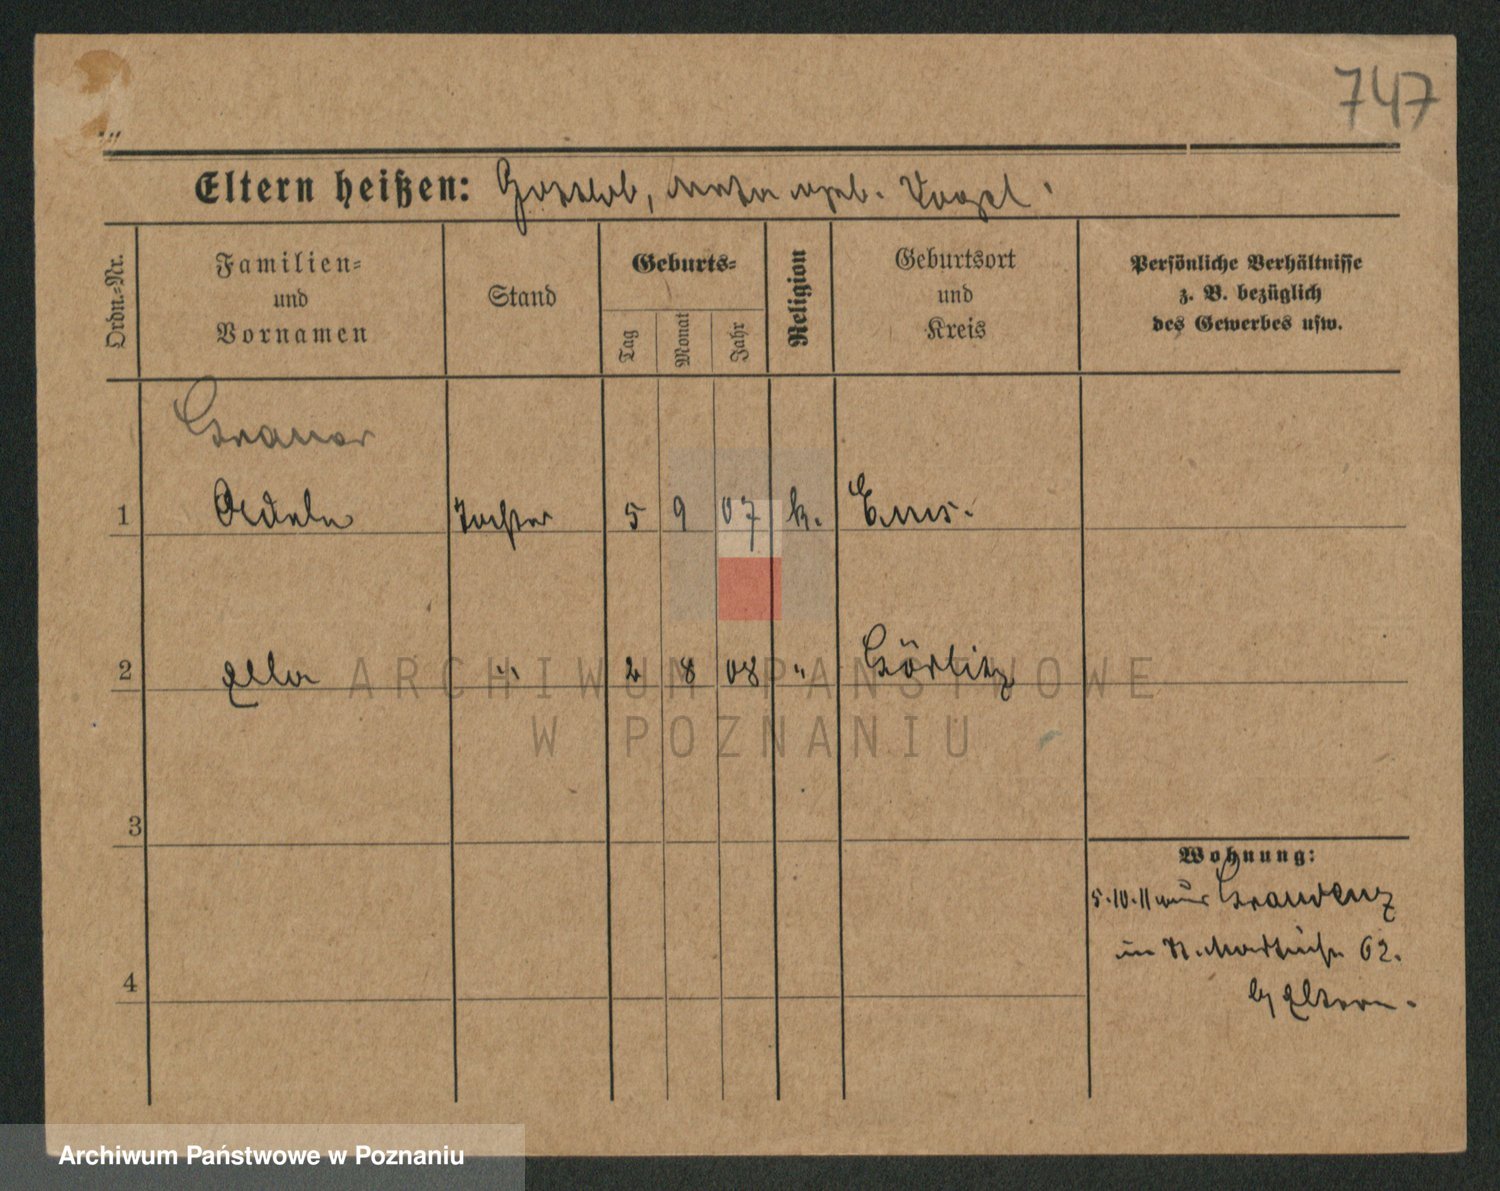 747
Eltern heißen: Gottlob, geb. Vogel
Ordn.=Nr.
Familien=
und
Vornamen
Stand
Geburts=
Tag
Monat
Jahr
Religion
Geburtsort
und
Kreis
Persönliche Verhältnisse
z. B. bezüglich
des Gewerbes usw.
1 Tochter 5 9 07 k. Ems.
2 Ella " 2 8 08 " Görlitz
3
4
Wohnung:
5.10.11 aus Graudenz
in N. 62.
b/ Eltern.
ARCHIWUM PAŃSTWOWE
W POZNANIU
Archiwum Państwowe w Poznaniu